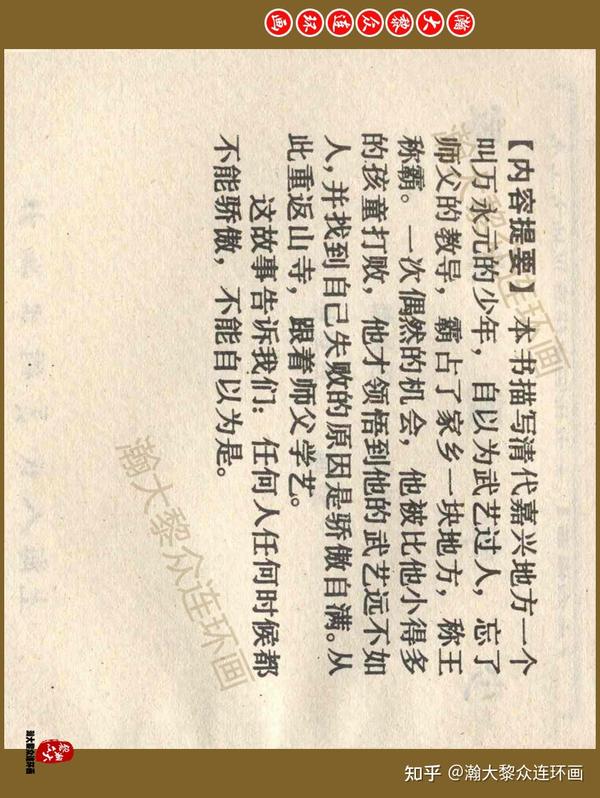 瀚大黎众连环画
【内容提要】本书描写清代嘉兴地方一个
叫万永元的少年，自以为武艺过人，忘了
师父的教导，霸占了家乡一块地方，称王
称霸。一次偶然的机会，他被比他小得多
的孩童打败，他才领悟到他的武艺远不如
人，并找到自己失败的原因是骄傲自满。从
此重返山寺，跟着师父学艺。
这故事告诉我们：任何人任何时候都
不能骄傲，不能自以为是。
瀚大黎众连环画
瀚大黎众连环画
瀚大黎众连环画
知乎 @瀚大黎众连环画